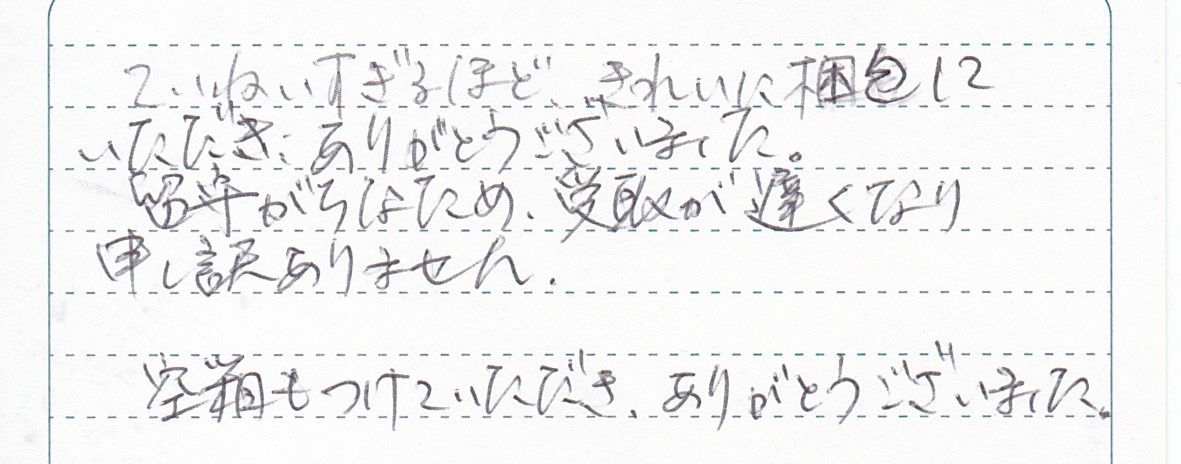 ていねいすぎるほど、きれいに梱包して
いただき、ありがとうございました。
留守がちなため、受取が遅くなり
申し訳ありません.
空箱もつけていただき、ありがとうございました。